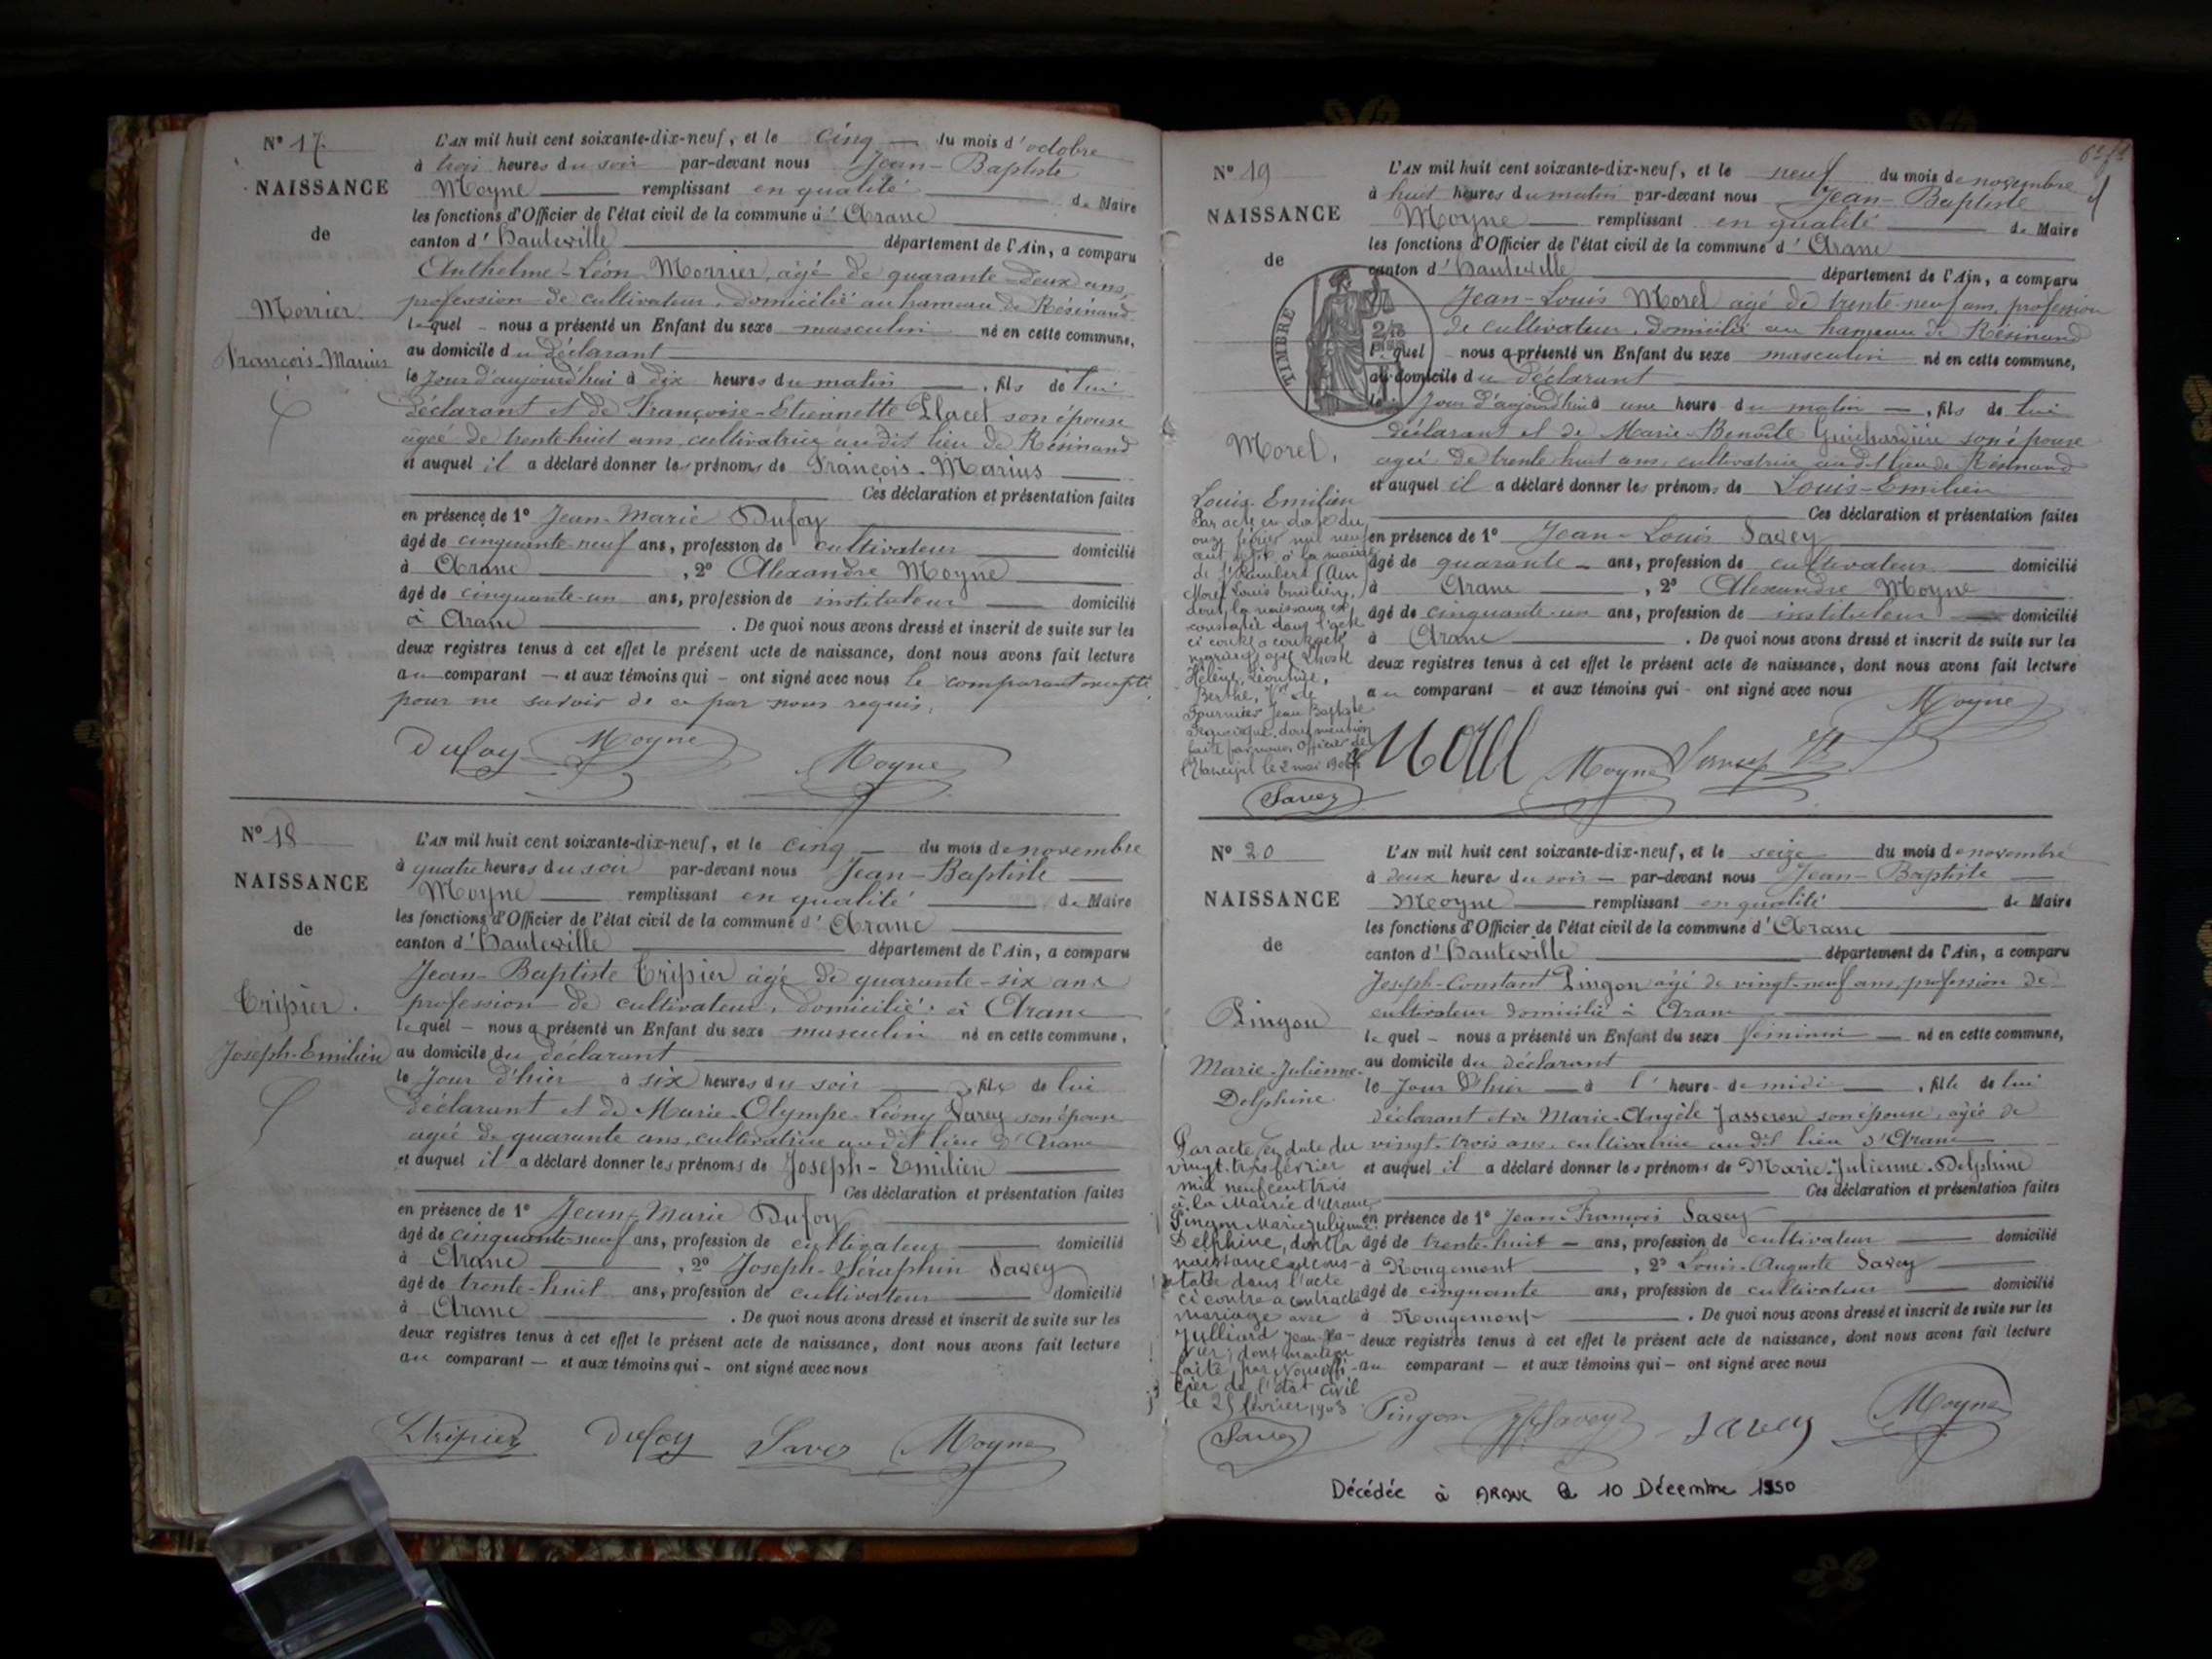 N° 17
NAISSANCE
de
Morrier
François-Marius
L'AN mil huit cent soixante-dix-neuf, et le cinq — du mois d'octobre
à trois heures du soir par-devant nous Jean-Baptiste
Moyne remplissant en qualité de Maire
les fonctions d'Officier de l'état civil de la commune d'Aranc
canton d'Hauteville département de l'Ain, a comparu
Anthelme-Léon Morrier, âgé de quarante-deux ans,
profession de cultivateur, domicilié au hameau de Résinand
lequel — nous a présenté un Enfant du sexe masculin né en cette commune,
au domicile du déclarant
le jour d'aujourd'hui à dix heures du matin — , fils de lui
déclarant et de Françoise-Etiennette Placet son épouse
agée de trente-huit ans, cultivatrice au dit lieu de Résinand
et auquel il a déclaré donner les prénoms de François-Marius
Ces déclaration et présentation faites
en présence de 1° Jean-Marie Dufoy
âgé de cinquante-neuf ans, profession de cultivateur domicilié
à Aranc , 2° Alexandre Moyne
âgé de cinquante-un ans, profession de instituteur domicilié
à Aranc . De quoi nous avons dressé et inscrit de suite sur les
deux registres tenus à cet effet le présent acte de naissance, dont nous avons fait lecture
au comparant — et aux témoins qui — ont signé avec nous le comparant excepté
pour ne savoir de ce par nous requis.
Dufoy Moyne Moyne
N° 18
NAISSANCE
de
Tripier.
Joseph-Emilien
L'AN mil huit cent soixante-dix-neuf, et le cinq — du mois de novembre
à quatre heures du soir par-devant nous Jean-Baptiste
Moyne remplissant en qualité de Maire
les fonctions d'Officier de l'état civil de la commune d'Aranc
canton d'Hauteville département de l'Ain, a comparu
Jean-Baptiste Tripier âgé de quarante-six ans
profession de cultivateur, domicilié à Aranc
lequel — nous a présenté un Enfant du sexe masculin né en cette commune,
au domicile du déclarant
le jour d'hier à six heures du soir , fils de lui
déclarant et de Marie-Olympe-Léony Savey son épouse
agée de quarante ans, cultivatrice au dit lieu d'Aranc
et auquel il a déclaré donner les prénoms de Joseph-Emilien
Ces déclaration et présentation faites
en présence de 1° Jean-Marie Dufoy
âgé de cinquante-neuf ans, profession de cultivateur domicilié
à Aranc , 2° Joseph-Séraphin Savey
âgé de trente-huit ans, profession de cultivateur domicilié
à Aranc . De quoi nous avons dressé et inscrit de suite sur les
deux registres tenus à cet effet le présent acte de naissance, dont nous avons fait lecture
au comparant — et aux témoins qui — ont signé avec nous
Tripier Dufoy Savey Moyne
N° 19
NAISSANCE
de
TIMBRE
Morel,
Louis-Emilien
Par acte en date du
onze février mil neuf
cent six à la mairie
de St Rambert (Ain)
Morel Louis Emilien,
dont la naissance est
constatée dans l'acte
ci contre a contracté
mariage avec
Hélène, Léontine,
Berthe, Vve de
Fournier Jean Baptiste
dont mention
faite par nous Officier de
l'Etat civil le 2 mai 1906
Savey
L'AN mil huit cent soixante-dix-neuf, et le neuf du mois de novembre
à huit heures du matin par-devant nous Jean-Baptiste
Moyne remplissant en qualité de Maire
les fonctions d'Officier de l'état civil de la commune d'Aranc
canton d'Hauteville département de l'Ain, a comparu
Jean-Louis Morel agé de trente-neuf ans, profession
de cultivateur, domicilié au hameau de Résinand
lequel — nous a présenté un Enfant du sexe masculin né en cette commune,
au domicile du déclarant
le jour d'aujourd'hui à une heure du matin — , fils de lui
déclarant et de Marie-Benoîte Guichardière son épouse
agée de trente huit ans, cultivatrice au dit lieu de Résinand
et auquel il a déclaré donner les prénoms de Louis-Emilien
Ces déclaration et présentation faites
en présence de 1° Jean-Louis Savey
âgé de quarante — ans, profession de cultivateur domicilié
à Aranc , 2° Alexandre Moyne
âgé de cinquante-un ans, profession de instituteur domicilié
à Aranc . De quoi nous avons dressé et inscrit de suite sur les
deux registres tenus à cet effet le présent acte de naissance, dont nous avons fait lecture
au comparant — et aux témoins qui — ont signé avec nous
Moyne
Morel Moyne Savey
N° 20
NAISSANCE
de
Pingon
Marie-Julienne-
Delphine
Par acte en date du
vingt-trois février
mil neuf cent trois
à la Mairie d'Aranc
Pingon Marie Julienne
Delphine, dont la
naissance est cons-
tatée dans l'acte
ci contre a contracté
mariage avec
Julliard Jean-Xa-
vier, dont mention
faite par Nous offi-
cier de l'état civil
le 25 février 1903
Savey
L'AN mil huit cent soixante-dix-neuf, et le seize du mois de novembre
à deux heures du soir — par-devant nous Jean-Baptiste
Moyne remplissant en qualité de Maire
les fonctions d'Officier de l'état civil de la commune d'Aranc
canton d'Hauteville département de l'Ain, a comparu
Joseph-Constant Pingon agé de vingt-neuf ans, profession de
cultivateur domicilié à Aranc
lequel — nous a présenté un Enfant du sexe féminin né en cette commune,
au domicile du déclarant
le jour d'hier — à l'heure de midi , fille de lui
déclarant et de Marie-Angèle Jasseron son épouse, agée de
vingt-trois ans, cultivatrice au dit lieu d'Aranc
et auquel il a déclaré donner les prénoms de Marie-Julienne-Delphine
Ces déclaration et présentation faites
en présence de 1° Jean-François Savey
âgé de trente-huit — ans, profession de cultivateur domicilié
à Rougemont , 2° Louis-Auguste Savey
âgé de cinquante ans, profession de cultivateur domicilié
à Rougemont . De quoi nous avons dressé et inscrit de suite sur les
deux registres tenus à cet effet le présent acte de naissance, dont nous avons fait lecture
au comparant — et aux témoins qui — ont signé avec nous
Pingon Savey Savey Moyne
Décédée à ARANC le 10 Décembre 1950